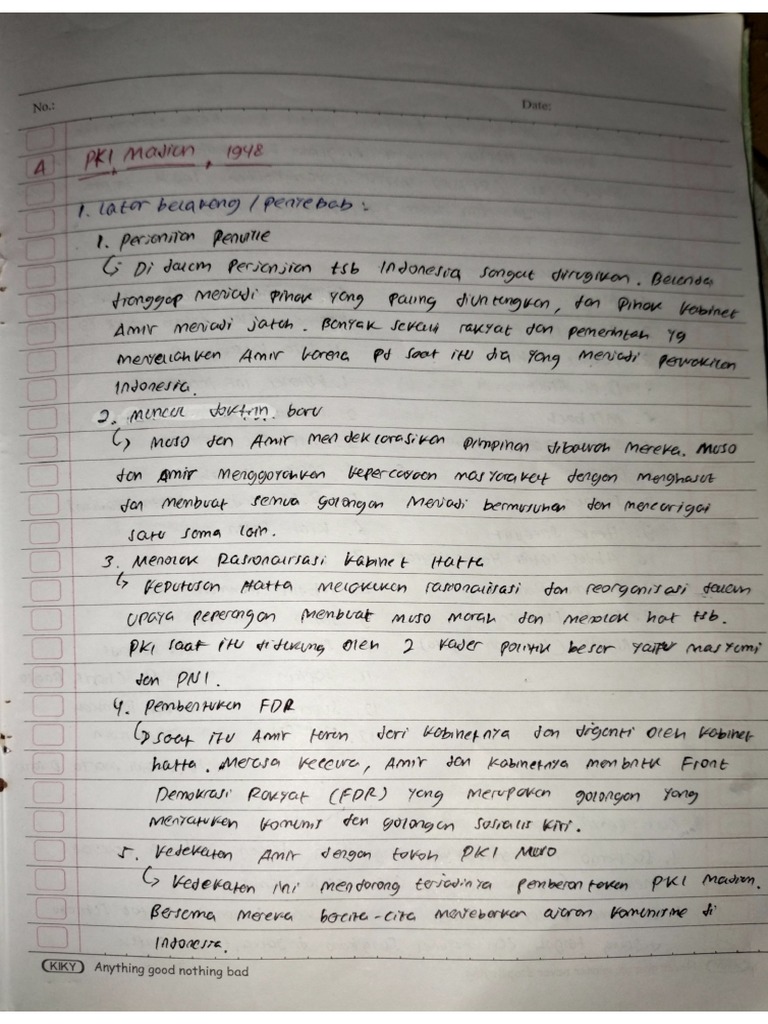 No.:
Date:
A PKI Madiun, 1948
1. Latar belakang / Penyebab :
1. Perjanjian Renville
↳ Di dalam Perjanjian tsb Indonesia sangat dirugikan. Belanda
dianggap menjadi pihak yang paling diuntungkan, dan pihak kabinet
Amir menjadi jatuh. Banyak sekali rakyat dan pemerintah yg
menyalahkan Amir karena pd saat itu dia yang menjadi perwakilan
Indonesia.
2. Muncul doktrin baru
↳ Muso dan Amir mendeklarasikan pimpinan dibawah mereka. Muso
dan Amir menggoyahkan kepercayaan masyarakat dengan menghasut
dan membuat semua golongan menjadi bermusuhan dan mencurigai
satu sama lain.
3. Menolak Rasionalisasi Kabinet Hatta
↳ Keputusan Hatta melakukan rasionalisasi dan reorganisasi dalam
upaya peperangan membuat muso marah dan menolak hal tsb.
PKI saat itu didukung oleh 2 kader politik besar yaitu masyumi
dan PNI.
4. Pembentukan FDR
↳ saat itu Amir turun dari kabinetnya dan diganti oleh kabinet
hatta. Merasa kecewa, Amir dan kabinetnya membntk Front
Demokrasi Rakyat (FDR) yang merupakan golongan yang
menyatukan komunis dan golongan sosialis kiri.
5. Kedekatan Amir dengan tokoh PKI Muso
↳ Kedekatan ini mendorong terjadinya pemberontakan PKI Madiun.
Bersama mereka bercita-cita menyebarkan ajaran komunisme di
Indonesia.
KIKY Anything good nothing bad